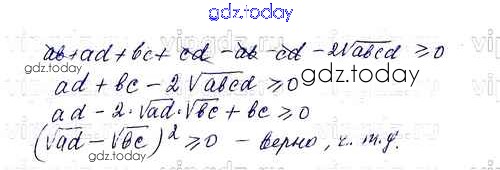 gdz.today
ab + ad + bc + cd - ab - cd - 2√abcd ≥ 0
gdz.today
ad + bc - 2√abcd ≥ 0
gdz.today
ad - 2·√ad·√bc + bc ≥ 0
(√ad - √bc)² ≥ 0 - верно, ч. т. д.
gdz.today